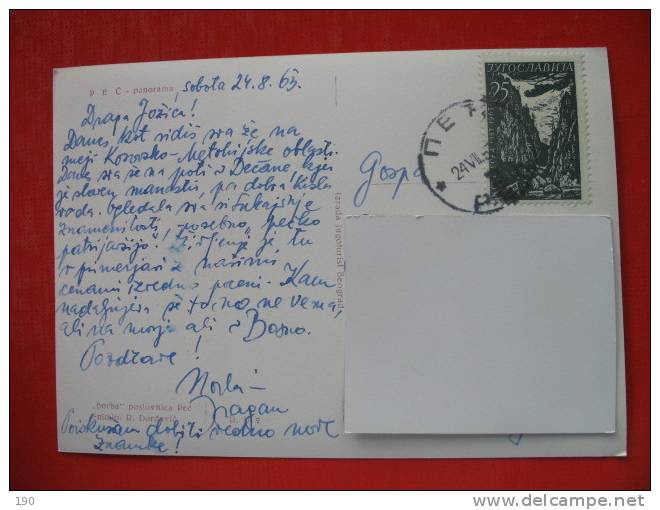 P E Ć - panorama
sobota 24.8.63.
Draga Jožica!
Danes, kot vidiš sva že na
meji Kosovsko-Metohijske oblasti.
Danes sva se na poti v Dečane, kjer
je sloven manastir, pa dobra kisla
voda. Ogledala sva si tukajšnje
znamenitosti, posebno "pečko
patrijaršijo". Življenje je tu
v primerjavi z našimi
cenami izredno poceni. Kam
nadaljujeva še točno ne veva,
ali na morje ali v Bosno.
Pozdrave!
Dragan
"Borba" poslovnica Peć
Snimio: R. Đorđević
Poizkusam dobiti vedno nove
znamke!
Izrada Jugoturist Beograd
Gospa
ЈУГОСЛАВИЈА
25
ПЕЋ
24 VIII
190
http://www.delcampe.net